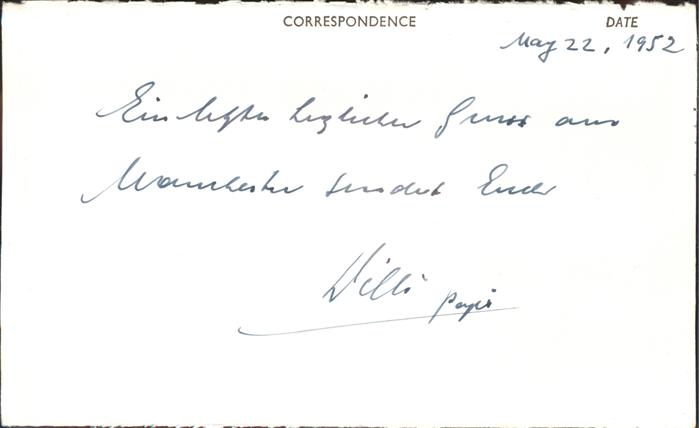 CORRESPONDENCE DATE
May 22, 1952
Ein letzter herzlicher Gruss aus
Manchester sendet Euch
Willi papi